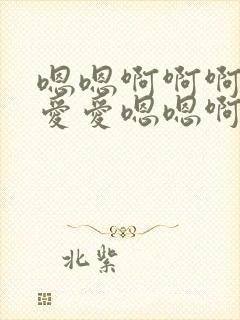 嗯嗯啊啊啊
爱爱嗯嗯啊
北紫